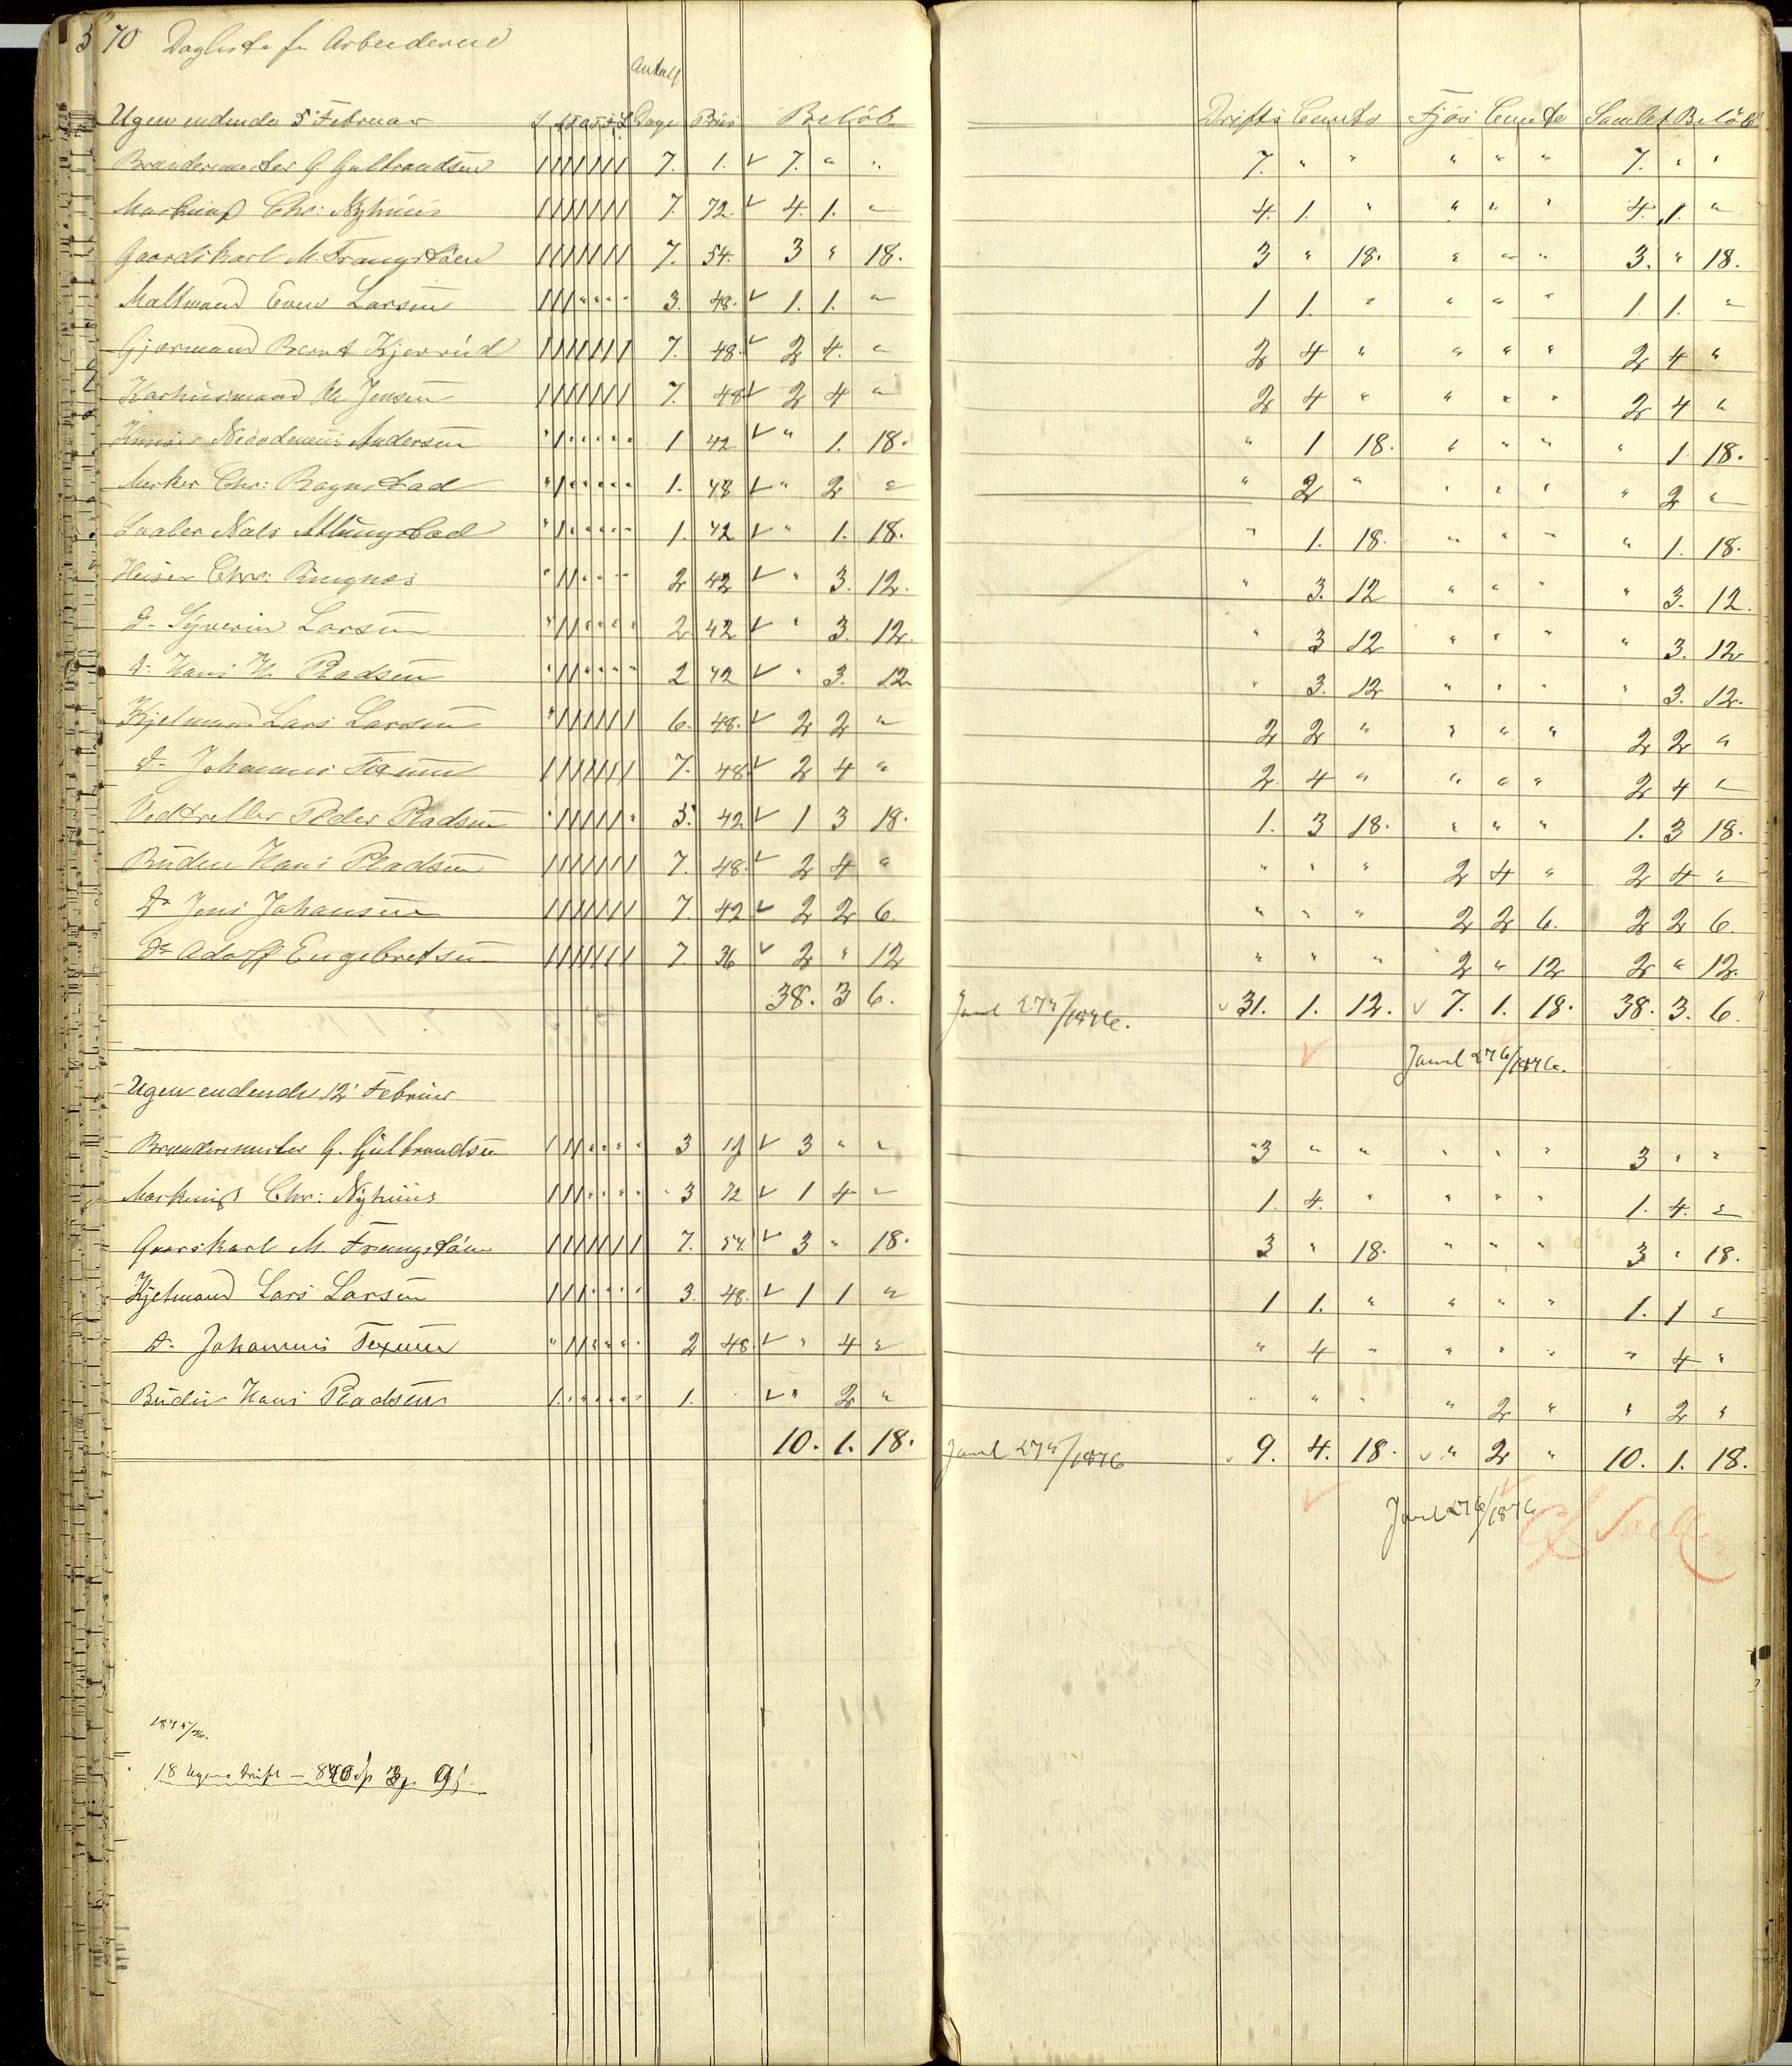 70 Dagliste for Arbeiderne
Antall
Ugen endende 5' Februar S M T O T F L Dage Priis Beløb Drifts Conto Fjøs Conto Samlet Beløb
Brændermester G. Gulbrandsen | | | | | | | 7. 1. ✓ 7. " " 7. " " " " " 7. " "
Chr: Nyhuus | | | | | | | 7. 72. ✓ 4. 1. " 4. 1. " " " " 4. 1. "
Gaardskarl M. Frangstøen | | | | | | | 7. 54. 3 " 18. 3 " 18. " " " 3. " 18.
Maltmand Even Larsen | | | " " " " 3. 48. ✓ 1. 1. " 1 1. " " " " 1. 1. "
Gjærmand Bernt Kjerrud | | | | | | | 7. 48. ✓ 2 4. " 2 4 " " " " 2 4 "
Karhuusmand Ole Jensen | | | | | | | 7. 48 ✓ 2 4 " 2 4 " " " " 2 4 "
Nicodemus Andersen " | " " " " " 1 42 ✓ " 1. 18. " 1 18. " " " " 1 18.
Mesker Chr: Ragnstad " | " " " " " 1. 48 ✓ " 2 " " 2 " " " " " 2 "
Nils " | " " " " " 1. 42 ✓ " 1. 18. " 1. 18. " " " " 1. 18.
Chr: Ringnes " | | " " " " 2 42 ✓ " 3. 12. " 3. 12 " " " " 3. 12.
Do Syverin Larsen " | | " " " " 2 42 ✓ " 3. 12. " 3 12 " " " " 3. 12
Do Hans H. Pladsen " | | " " " " 2 42 ✓ " 3. 12 " 3. 12 " " " " 3. 12.
Kjelmand Lars Larsen " | | | | | | 6. 48. ✓ 2 2 " 2 2 " " " " 2 2 "
Do Johannes | | | | | | | 7. 48 ✓ 2 4 " 2. 4 " " " " 2 4 "
Peder Pladsen " | | | | | " 5. 42 ✓ 1 3 18. 1. 3 18. " " " 1. 3 18.
Hans Pladsen | | | | | | | 7. 48. ✓ 2 4 " " " " 2 4 " 2 4 "
Do Jens Johansen | | | | | | | 7. 42 ✓ 2 2 6. " " " 2 2 6. 2 2 6.
Do Adolf Engebretsen | | | | | | | 7. 36 ✓ 2 " 12 " " " 2 " 12 2 " 12.
38. 3 6. Jurnl 275/1876. ✓ 31. 1. 12. ✓ 7. 1. 18. 38. 3. 6.
✓ Jurnl 276/1876.
Ugen endende 12' Februar
Brændermester G. Gulbrandsen | | | " " " " 3 1 ✓ 3 " " 3 " " " " " 3 " "
Chr: Nyhuus | | | " " " " 3 72 ✓ 1 4 " 1. 4. " " " " 1. 4. "
Gaardskarl M. Frangstøen | | | | | | | 7. 54. ✓ 3 " 18. 3 " 18. " " " 3 " 18.
Kjelmand Lars Larsen | | | " " " " 3. 48. ✓ 1 1 " 1 1. " " " " 1. 1 "
Do Johannes " | | " " " " 2 48. ✓ " 4 " " 4 " " " " " 4 "
Hans Pladsen | " " " " " " 1. ✓ " 2 " " " " " 2 " " 2 "
10. 1. 18. Jurnl 275/1876 ✓ 9. 4. 18. ✓ " 2 " 10. 1. 18.
✓ Jurnl 276/1876 ✓
1875/76.
18 Ugers Drift —